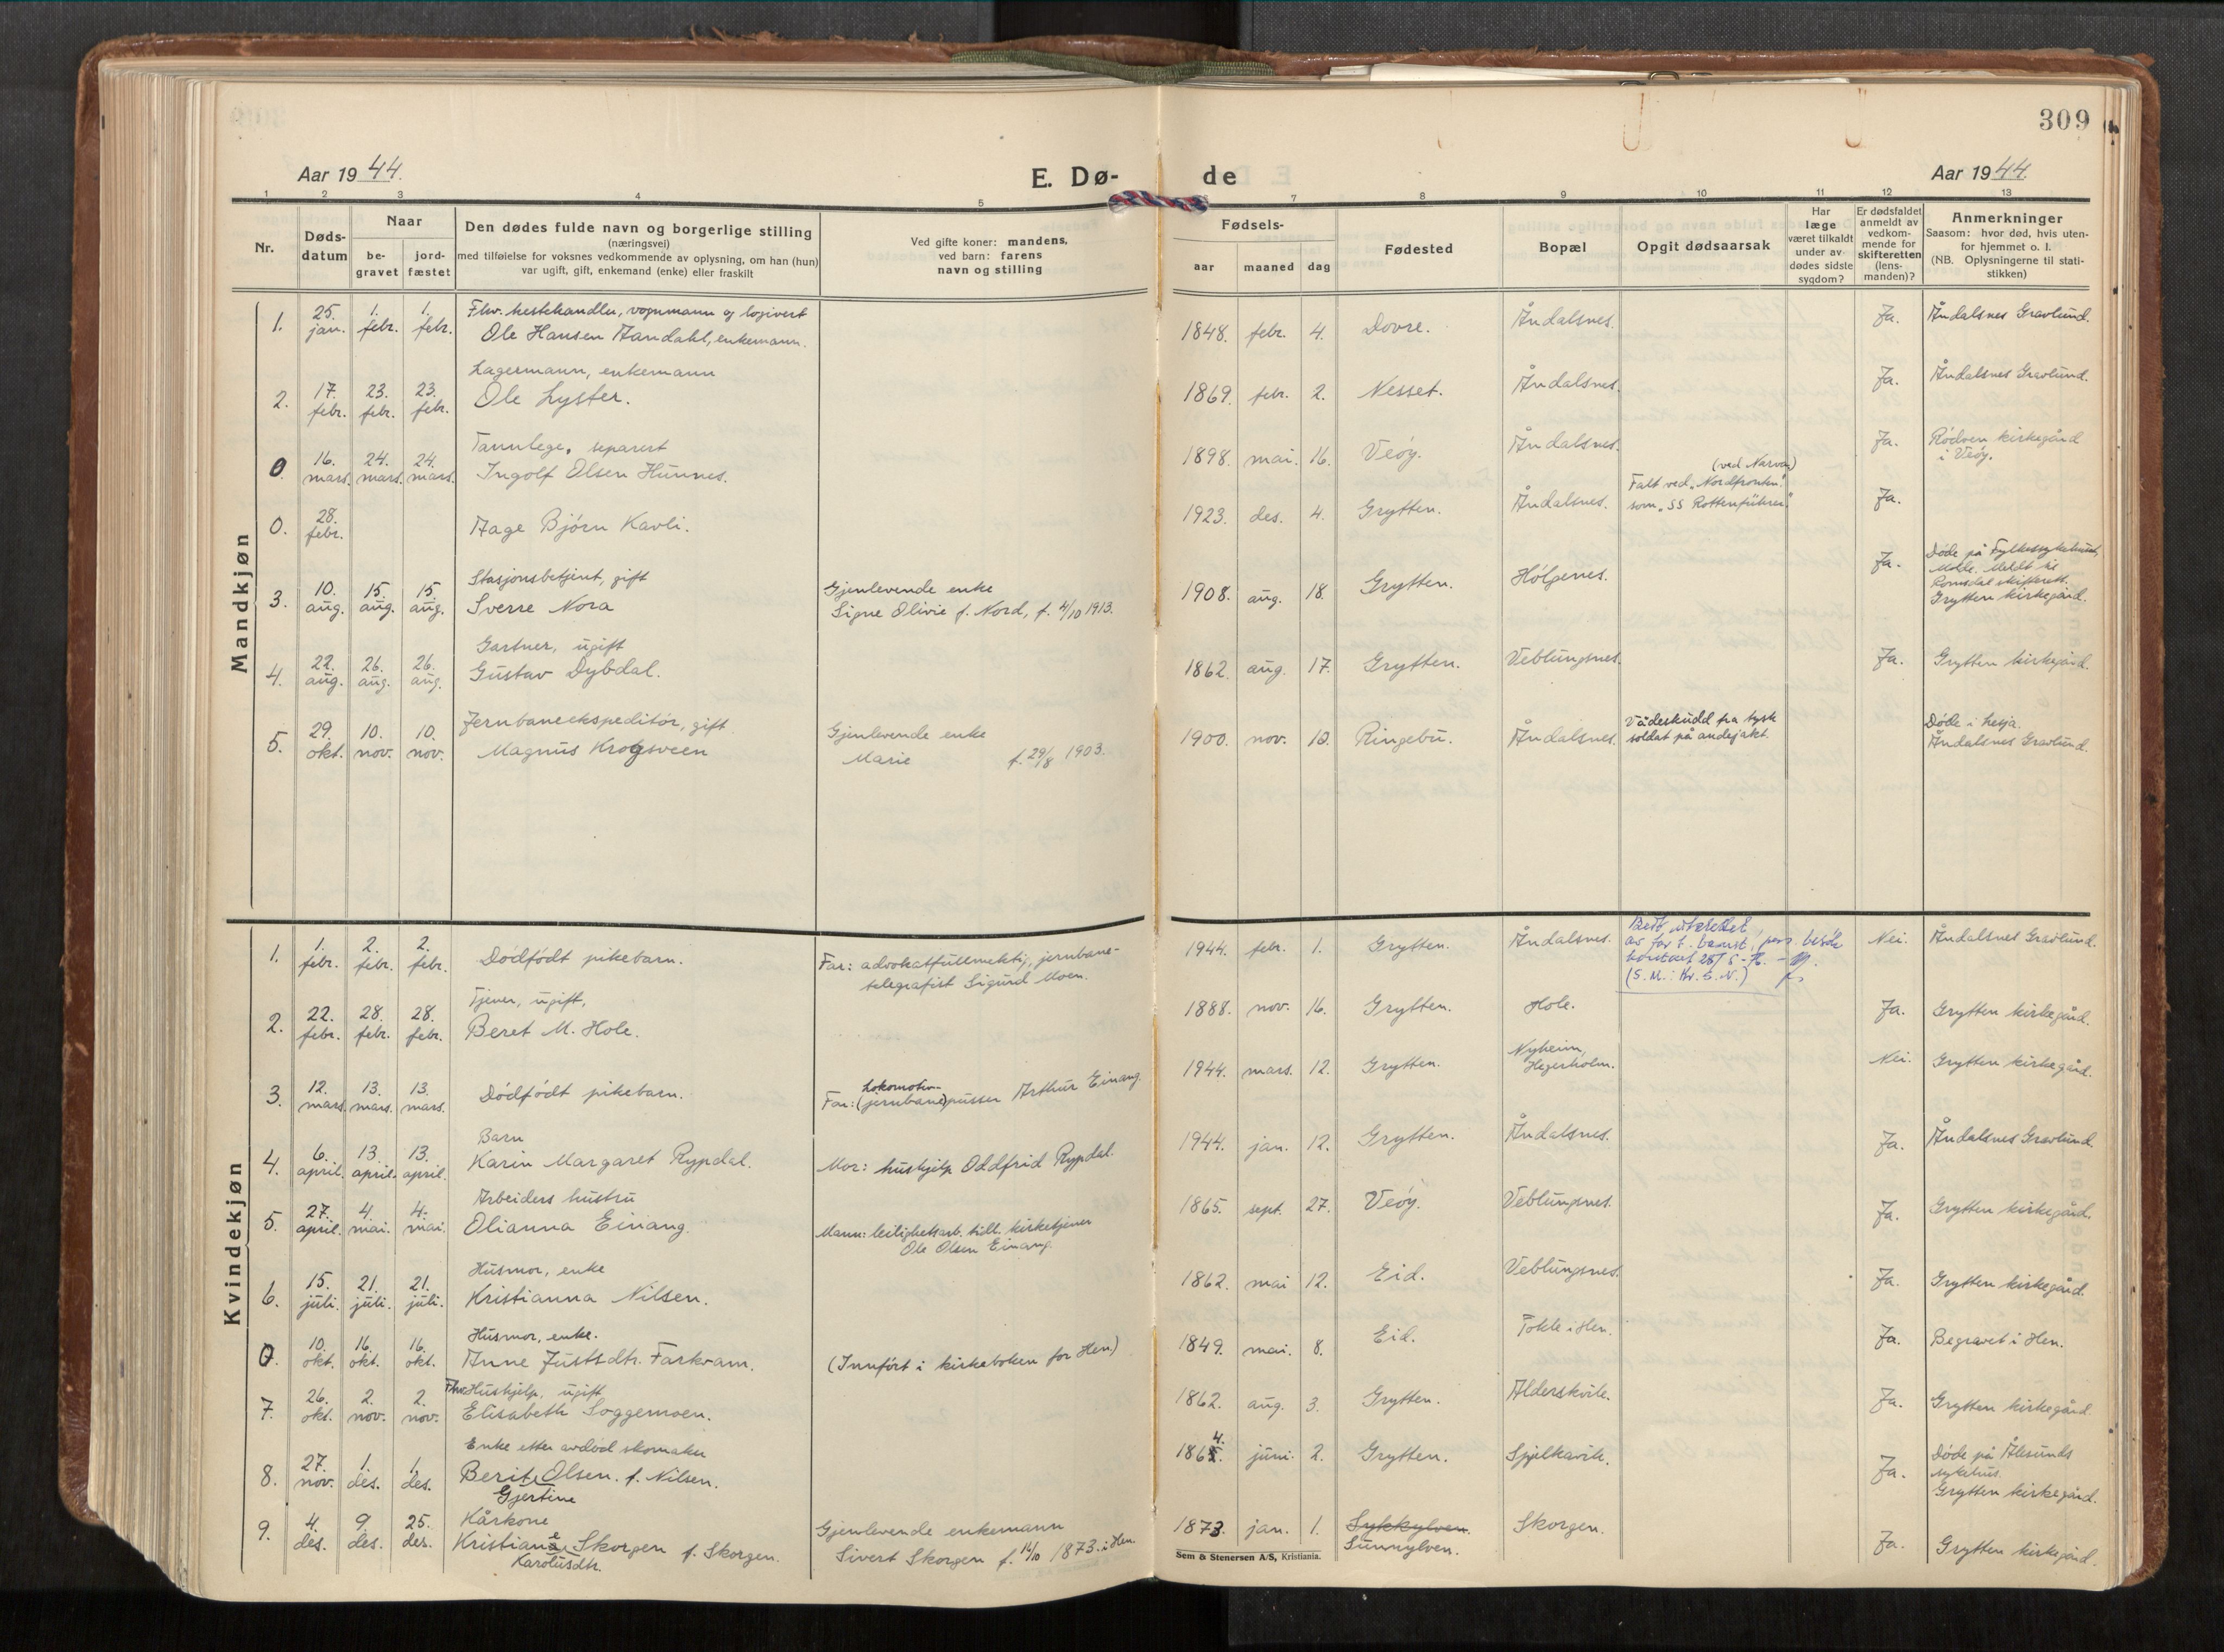 309
Aar 1944.
E. Dø-
de
Aar 1944.
1 2 3 4 5 6 7 8 9 10 11 12 13
Nr.
Døds-
datum
Naar
be-
gravet
jord-
fæstet
Den dødes fulde navn og borgerlige stilling
(næringsvei)
med tilføielse for voksnes vedkommende av oplysning, om han (hun)
var ugift, gift, enkemand (enke) eller fraskilt
Ved gifte koner: mandens,
ved barn: farens
navn og stilling
Fødsels-
aar maaned dag
Fødested
Bopæl
Opgit dødsaarsak
Har
læge
været tilkaldt
under av-
dødes sidste
sygdom?
Er dødsfaldet
anmeldt av
vedkom-
mende for
skifteretten
(lens-
manden)?
Anmerkninger
Saasom: hvor død, hvis uten-
for hjemmet o. l.
(NB. Oplysningerne til stati-
stikken)
Mandkjøn
1. 25. jan. 1. febr. 1. febr.
Fhv. hestehandler, vognmann og losjivert
Ole Hansen Aandahl, enkemann.
1848. febr. 4. Dovre. Åndalsnes. Ja. Åndalsnes Gravlund.
2. 17. febr. 23. febr. 23. febr.
Lagermann, enkemann
Ole Lyster.
1869. febr. 2. Nesset. Åndalsnes. Ja. Åndalsnes Gravlund.
0. 16. mars. 24. mars. 24. mars.
Tannlege, separert
Ingolf Olsen Hunnes.
1898. mai. 16. Veøy. Åndalsnes. Ja. Rødven kirkegård
i Veøy.
0. 28. febr.
Aage Bjørn Kavli.
1923. des. 4. Grytten. Åndalsnes.
(ved Narva)
Falt ved "Nordfronten"
som "SS Rottenführer"
Ja.
3. 10. aug. 15. aug. 15. aug.
Stasjonsbetjent, gift
Sverre Nora
Gjenlevende enke
Signe Olivie f. Nord, f. 4/10 1913.
1908. aug. 18. Grytten. Hølgenes. Ja.
Døde på Fylkessykehuset,
Molde. Meldt til
Romsdal skifterett.
Grytten kirkegård.
4. 22. aug. 26. aug. 26. aug.
Gartner, ugift
Gustav Dybdal.
1862. aug. 17. Grytten. Veblungsnes. Ja. Grytten kirkegård.
5. 29. okt. 10. nov. 10. nov.
Jernbaneekspeditør, gift
Magnus Krogsveen
Gjenlevende enke
Marie f. 29/8 1903.
1900. nov. 10. Ringebu. Åndalsnes.
Vådeskudd fra tysk
soldat på andejakt.
Døde i Lesja.
Åndalsnes Gravlund.
Kvindekjøn
1. 1. febr. 2. febr. 2. febr.
Dødfødt pikebarn.
Far: advokatfullmektig, jernbane-
telegrafist Sigurd Moen.
1944. febr. 1. Grytten. Åndalsnes.
av far
(S. M.
Nei. Åndalsnes Gravlund.
2. 22. febr. 28. febr. 28. febr.
Tjener, ugift,
Beret M. Hole.
1888. nov. 16. Grytten. Hole. Ja. Grytten kirkegård.
3. 12. mars. 13. mars. 13. mars.
Dødfødt pikebarn.
Lokomotiv-
Far: (jernbane)pusser Arthur Einang.
1944. mars. 12. Grytten. Nyheim,
Hegerholm.
Nei. Grytten kirkegård.
4. 6. april. 13. april. 13. april.
Barn
Karin Margaret Rypdal.
Mor: hushjelp Oddfrid Rypdal.
1944. jan. 12. Grytten. Åndalsnes. Ja. Åndalsnes Gravlund.
5. 27. april. 4. mai. 4. mai.
Arbeiders hustru
Olianna Einang.
Mann: leilighetsarb. tidl. kirketjener
Ole Olsen Einang.
1865. sept. 27. Veøy. Veblungsnes. Ja. Grytten kirkegård.
6. 15. juli. 21. juli. 21. juli.
Husmor, enke
Kristianna Nilsen.
1862. mai 12. Eid. Veblungsnes. Ja. Grytten kirkegård.
0. 10. okt. 16. okt. 16. okt.
Husmor, enke.
Anne Justsdtr. Farkvam.
(Innført i kirkeboken for Hen)
1849. mai. 8. Eid. Tokle i Hen. Ja. Begravet i Hen.
7. 26. okt. 2. nov. 2. nov.
Fhv. Hushjelp, ugift
Elisabeth Soggemoen.
1862. aug. 3. Grytten. Alderskvile. Ja. Grytten kirkegård.
8. 27. nov. 1. des. 1. des.
Enke etter avdød skomaker
Berit Olsen. f. Nilsen.
Gjertine
1864. juni. 2. Grytten. Spjelkavik. Ja.
Døde på Ålesunds
sykehus.
Grytten kirkegård.
9. 4. des. 9. des. 25. des.
Kårkone
Kristiane Skorgen f. Skorgen.
Karolusdtr.
Gjenlevende enkemann
Sivert Skorgen f. 14/10 1873. i Hen.
1873. jan. 1. Sykkylven.
Sunnylven.
Skorgen. Ja. Grytten kirkegård.
Sem & Stenersen A/S, Kristiania.